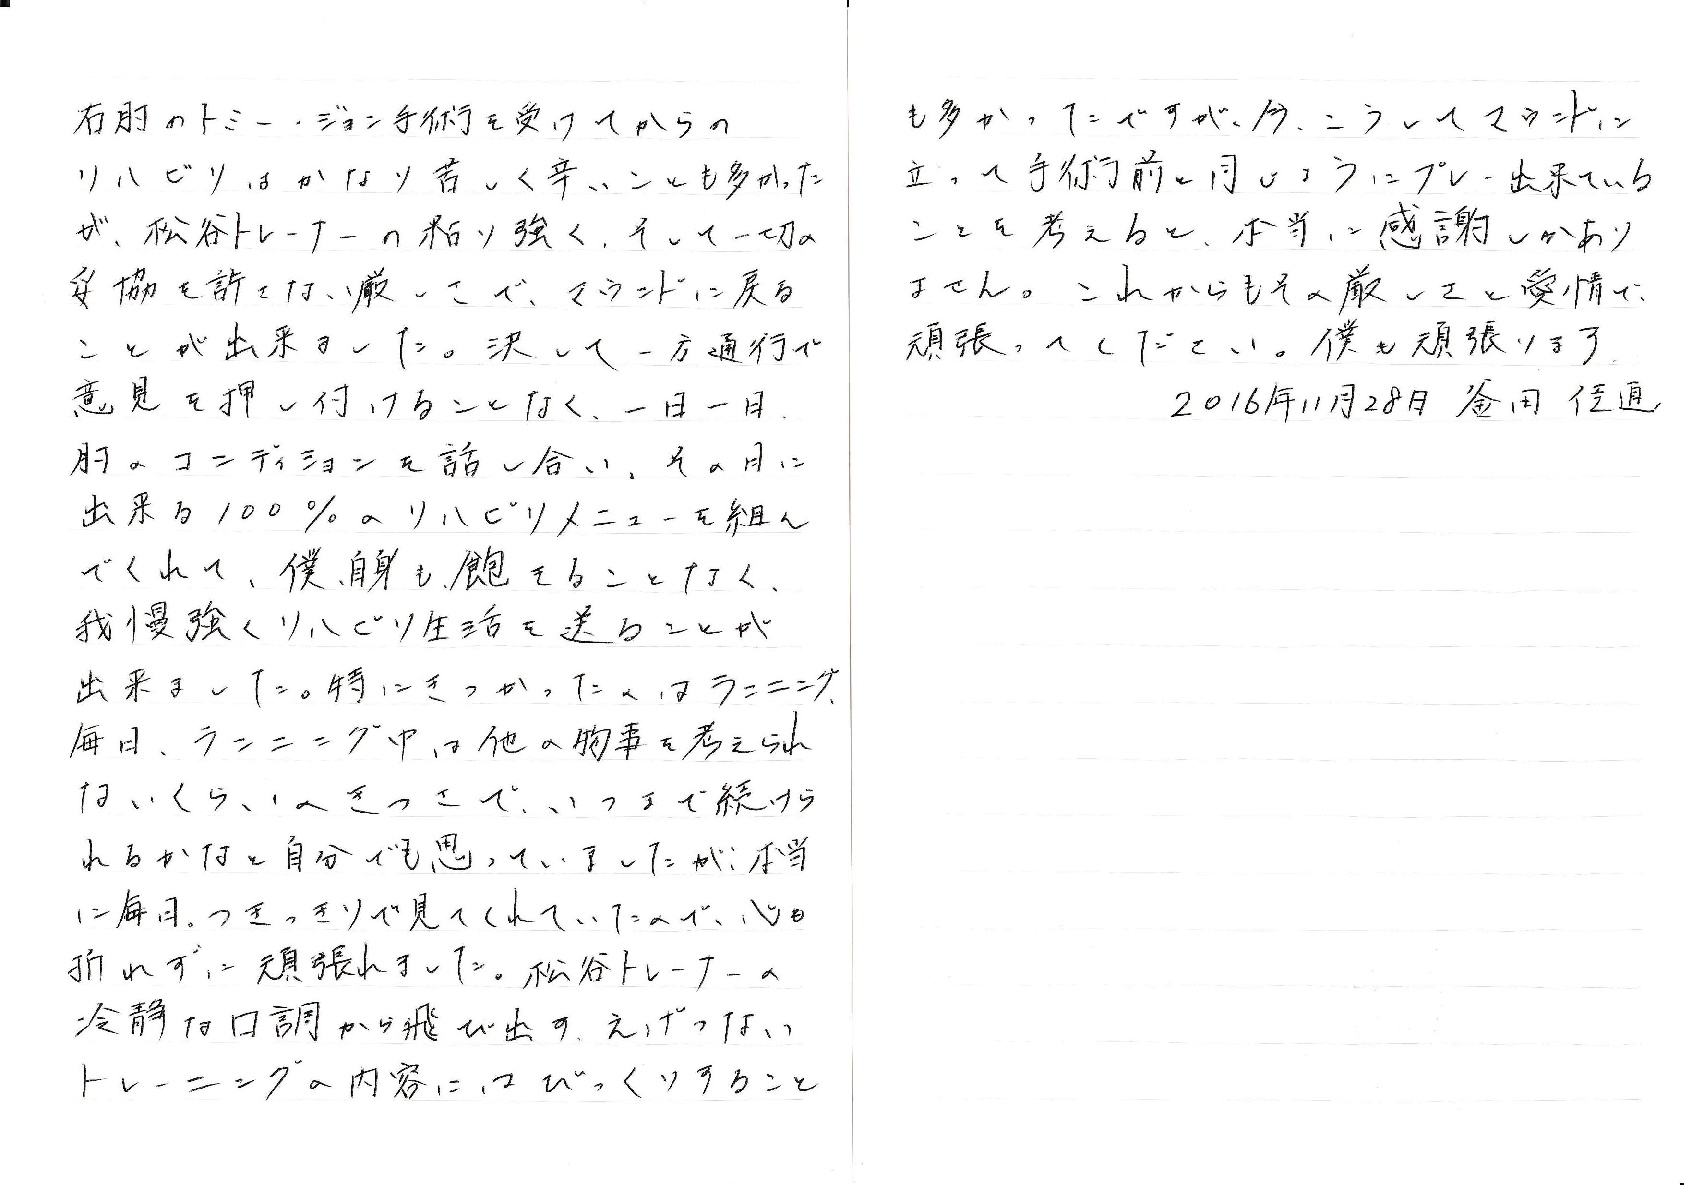 右肘のトミー・ジョン手術を受けてからの
リハビリはかなり苦しく辛いことも多かった
が、松谷トレーナーの粘り強く、そして一切の
妥協を許さない厳しさで、マウンドに戻る
ことが出来ました。決して一方通行で
意見を押し付けることなく、一日一日、
肘のコンディションを話し合い、その日に
出来る100%のリハビリメニューを組ん
でくれて、僕自身も飽きることなく、
我慢強くリハビリ生活を送ることが
出来ました。特にきつかったのはランニング、
毎日、ランニング中は他の物事を考えられ
ないくらいのきつさで、いつまで続けら
れるかなと自分でも思っていましたが、本当
に毎日、つきっきりで見てくれていたので、心も
折れずに頑張れました。松谷トレーナーの
冷静な口調から飛び出す、えげつない
トレーニングの内容にはびっくりすること
も多かったですが、今、こうしてマウンドに
立って手術前と同じようにプレー出来ている
ことを考えると、本当に感謝しかあり
ません。これからもその厳しさと愛情で、
頑張ってください。僕も頑張ります。
2016年11月28日 釜田 佳直